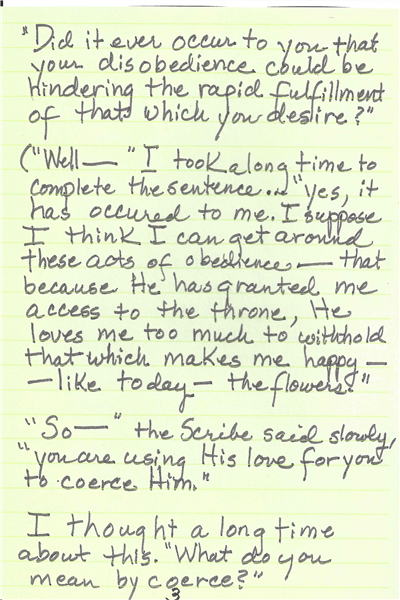 "Did it ever occur to you that
your disobedience could be
hindering the rapid fulfillment
of that which you desire?"
("Well— " I took a long time to
complete the sentence... "yes, it
has occured to me. I suppose
I think I can get around
these acts of obedience — that
because He has granted me
access to the throne, He
loves me too much to withhold
that which makes me happy —
— like today — the flowers."
"So—" the Scribe said slowly,
"you are using His love for you
to coerce Him."
I thought a long time
about this. "What do you
mean by coerce?"
3